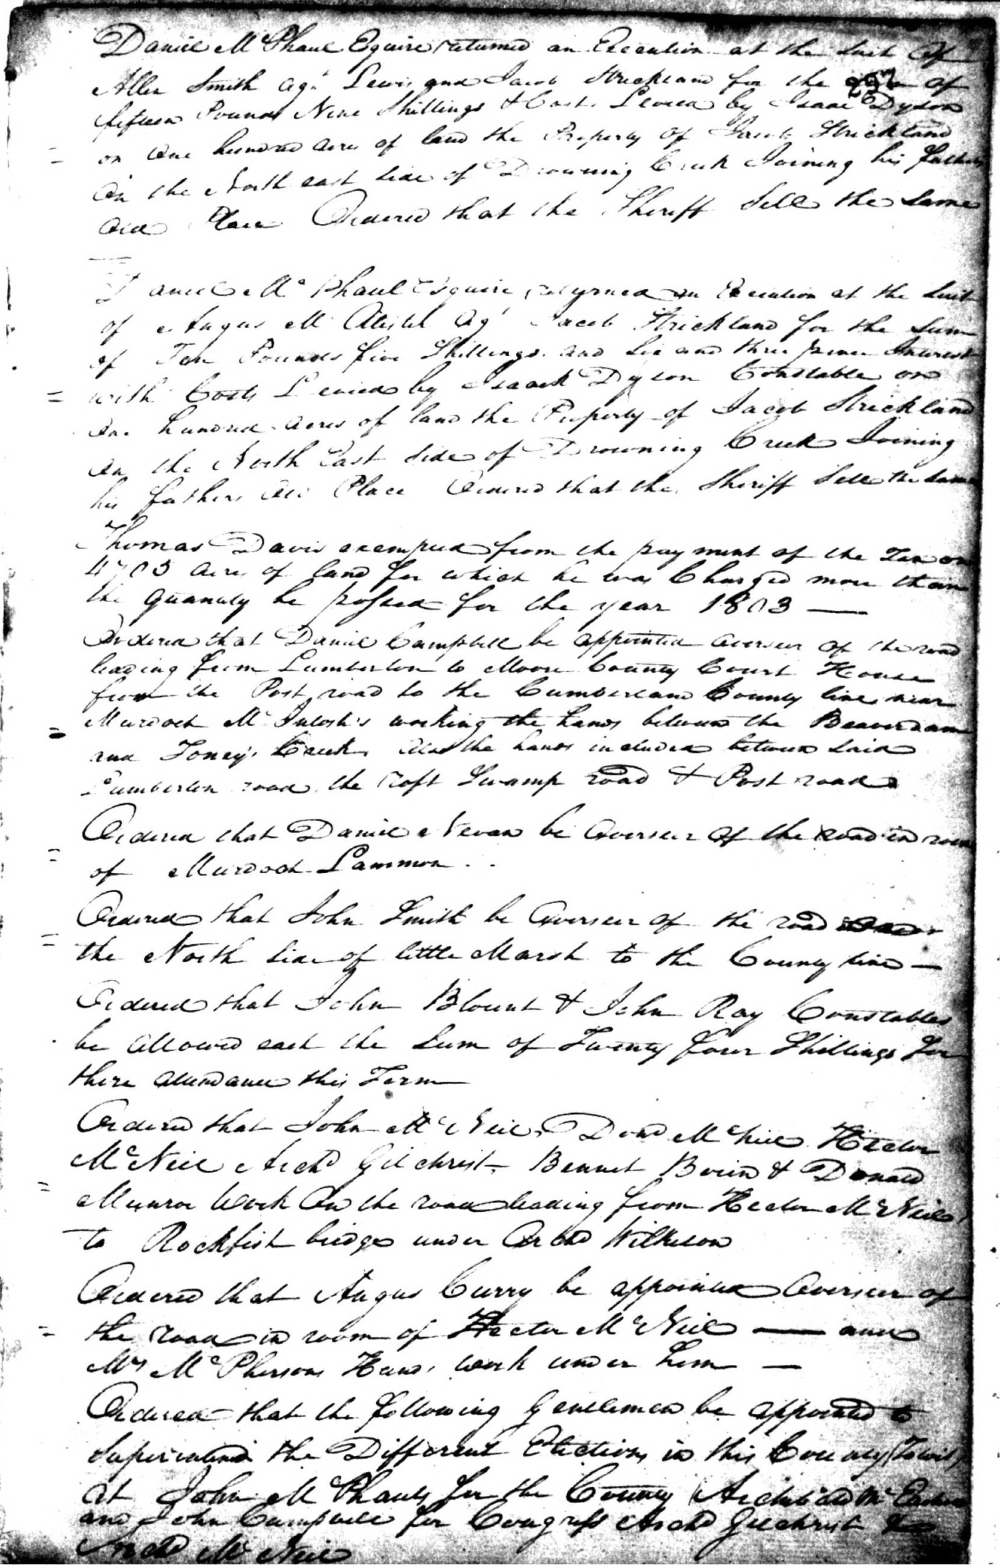 Daniel Mc Phaul Esquire returned an Execution at the Suit of
Allen Smith agt Lewis and Jacob Strickland for the of
257
fifteen Pounds Nine Shillings & Costs Levied by Isaac Dyson
on One hundred acres of land the Property of Jacob Strickland
On the North east side of Drowning Creek Joining his fathers
Old Place Ordered that the Sheriff Sell the Same
Daniel Mc Phaul Esquire returned an Execution at the Suit
of Angus Mc agt Jacob Strickland for the Sum
of Ten Pounds five Shillings and Six and three pence Interest
with Costs Levied by Isaack Dyson Constable on
One hundred acres of land the Property of Jacob Strickland
On the North East Side of Drowning Creek Joining
his fathers Old Place Ordered that the Sheriff Sell the Same
Thomas Davis exempted from the payment of the Tax on
4703 acres of land for which he was Charged more than
the quantity he possed for the year 1803
Ordered that Daniel Campbell be appointed overseer of the road
leading from Lumberton to Moore County Court House
from the Post road to the Cumberland County line near
Murdoch Mc Intosh's working the hands between the Beaverdam
and Toney's Creek, Also the hands included between Said
Lumberton road the raft Swamp road & Post road
Ordered that Daniel be Overseer of the road in room
of Murdoch Lammon
Ordered that John Smith be Overseer of the road
the North Side of little Marsh to the County line
Ordered that John Blount & John Ray Constables
be allowed each the Sum of Twenty four Shillings for
there attendance this Term
Ordered that John Mc Neil, Mc Neil Hector
Mc Neil Archd Gilchrist Bennet & Donald
Munroe Work On the road leading from Hector Mc Neils
to Rockfish bridge under Archd Wilkeson
Ordered that Angus Curry be appointed Overseer of
the road in room of Hector Mc Neil and
Mrs Mc Phersons Hands work under him
Ordered that the following Gentlemen be appointed to
Superintend the Different Elections in this County (Towit)
at John Mc Phauls for the County Archibald Mc Eachern
and John Campbell for Congress Archd Gilchrist &
Archd Mc Neil